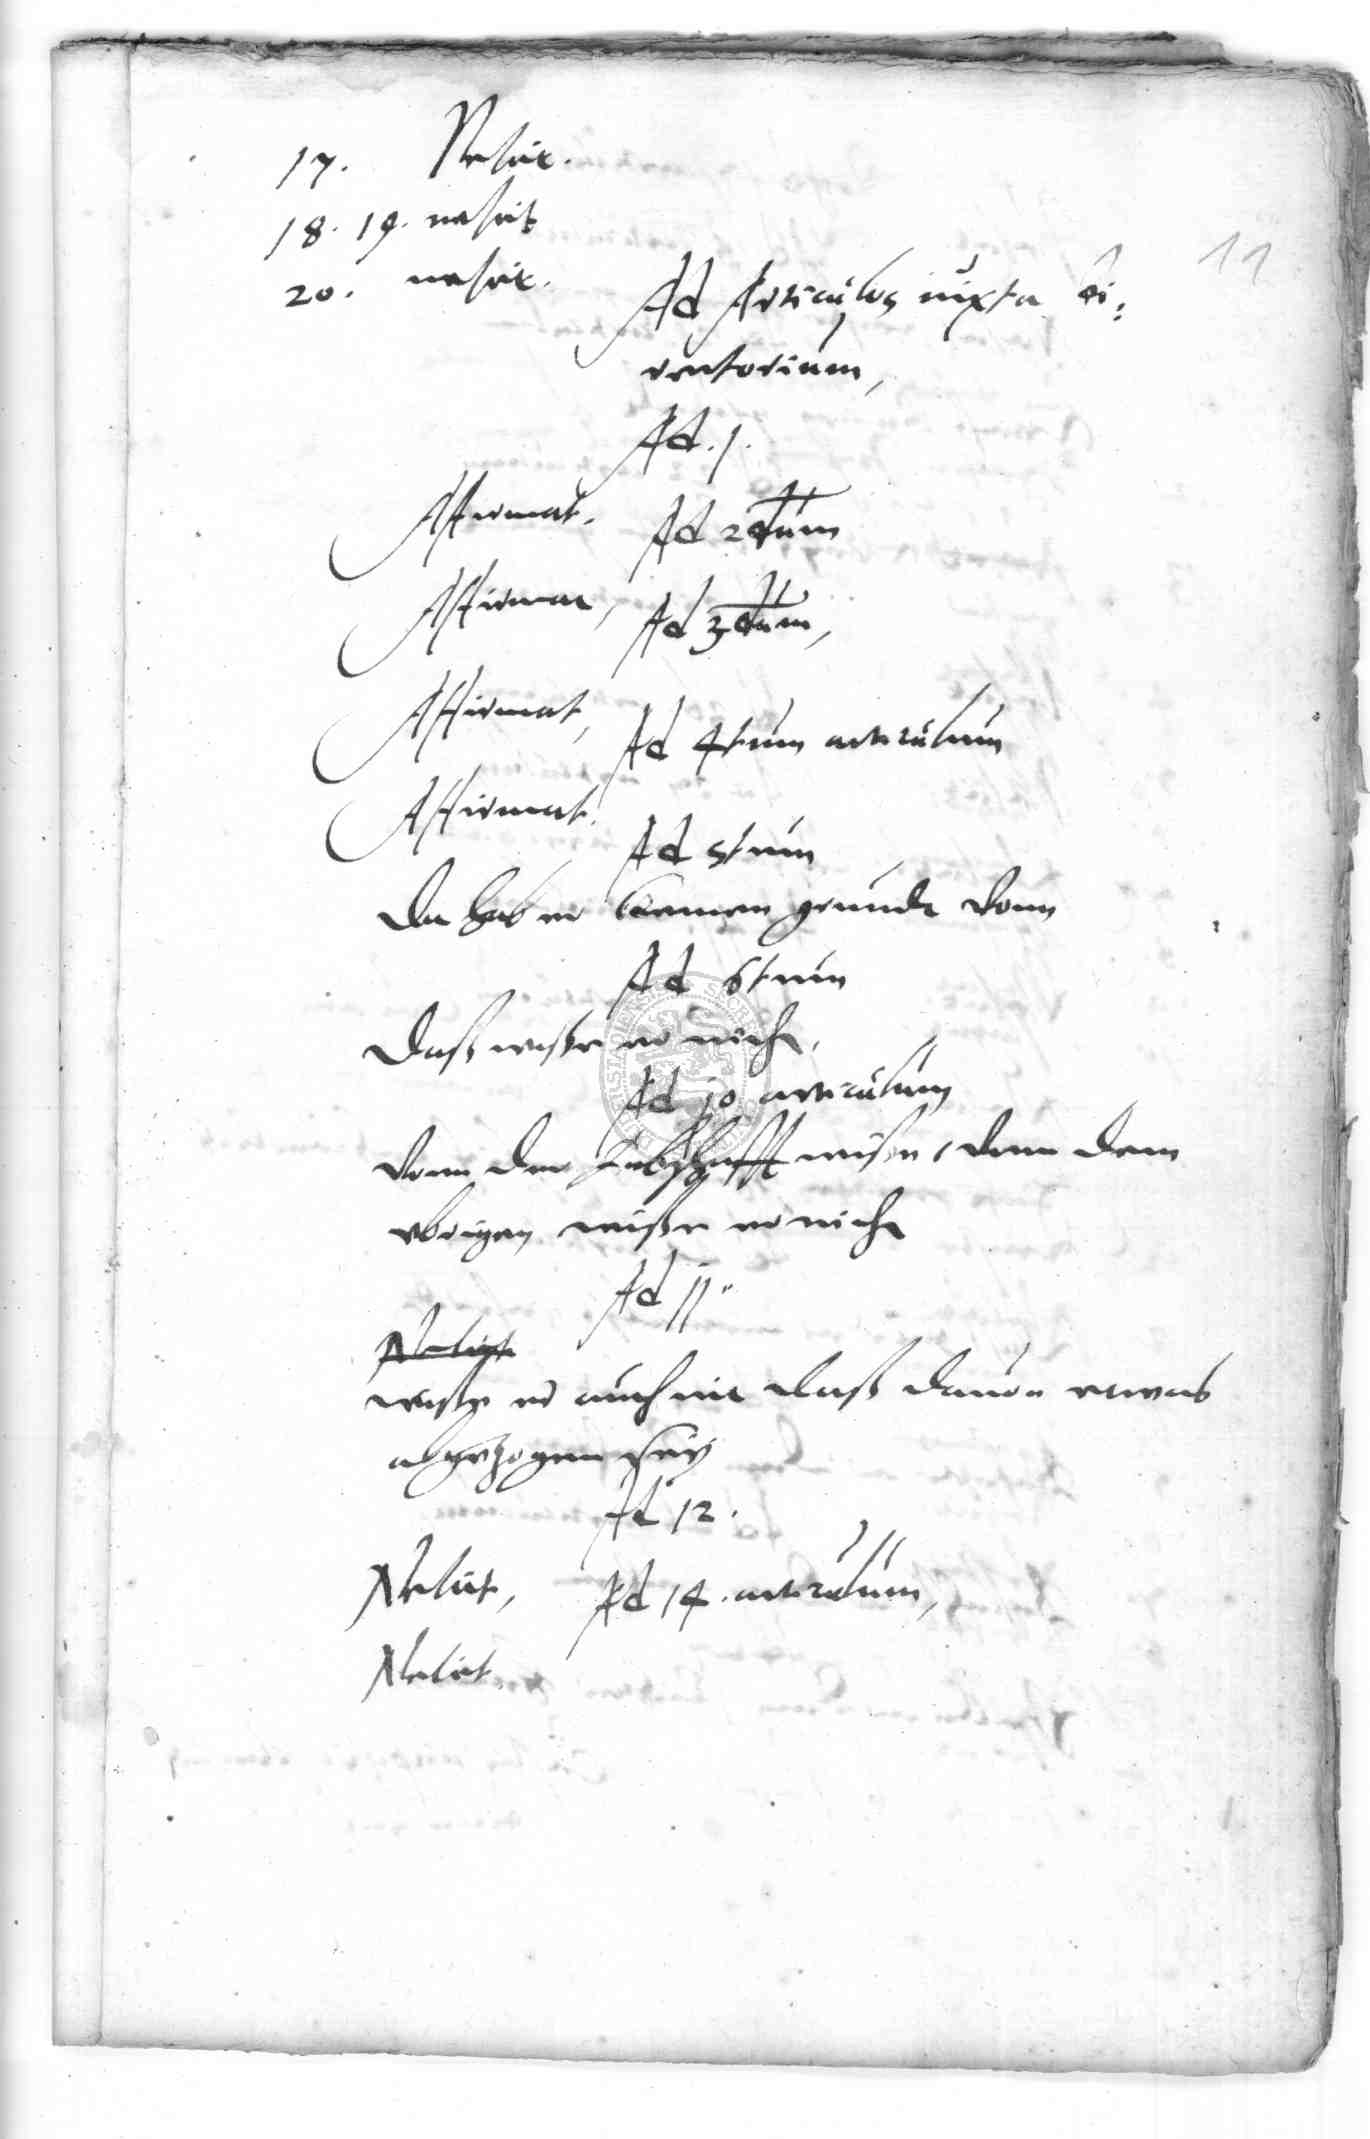 17. Nescit.
18. 19. nescit
20. nescit.
11
Ad Articulos iuxta di:
rectorium,
Ad .1.
Affirmat.
Ad 2dum
Affirmat,
Ad 3tium,
Affirmat,
Ad 4tum articulum
Affirmat.
Ad 5tum
Da hab er keinen grundt vonn
Ad 6tum
Daß wiße er nicht,
Ad 10 articulum
Vonn der wiße, vonn dem
vbrigen wiße er nicht
Ad 11.
Nescit
wiße er auch nit daß dauon etwas
abgezogen sey
Ad 12.
Nescit,
Ad 14. articulum,
Nescit